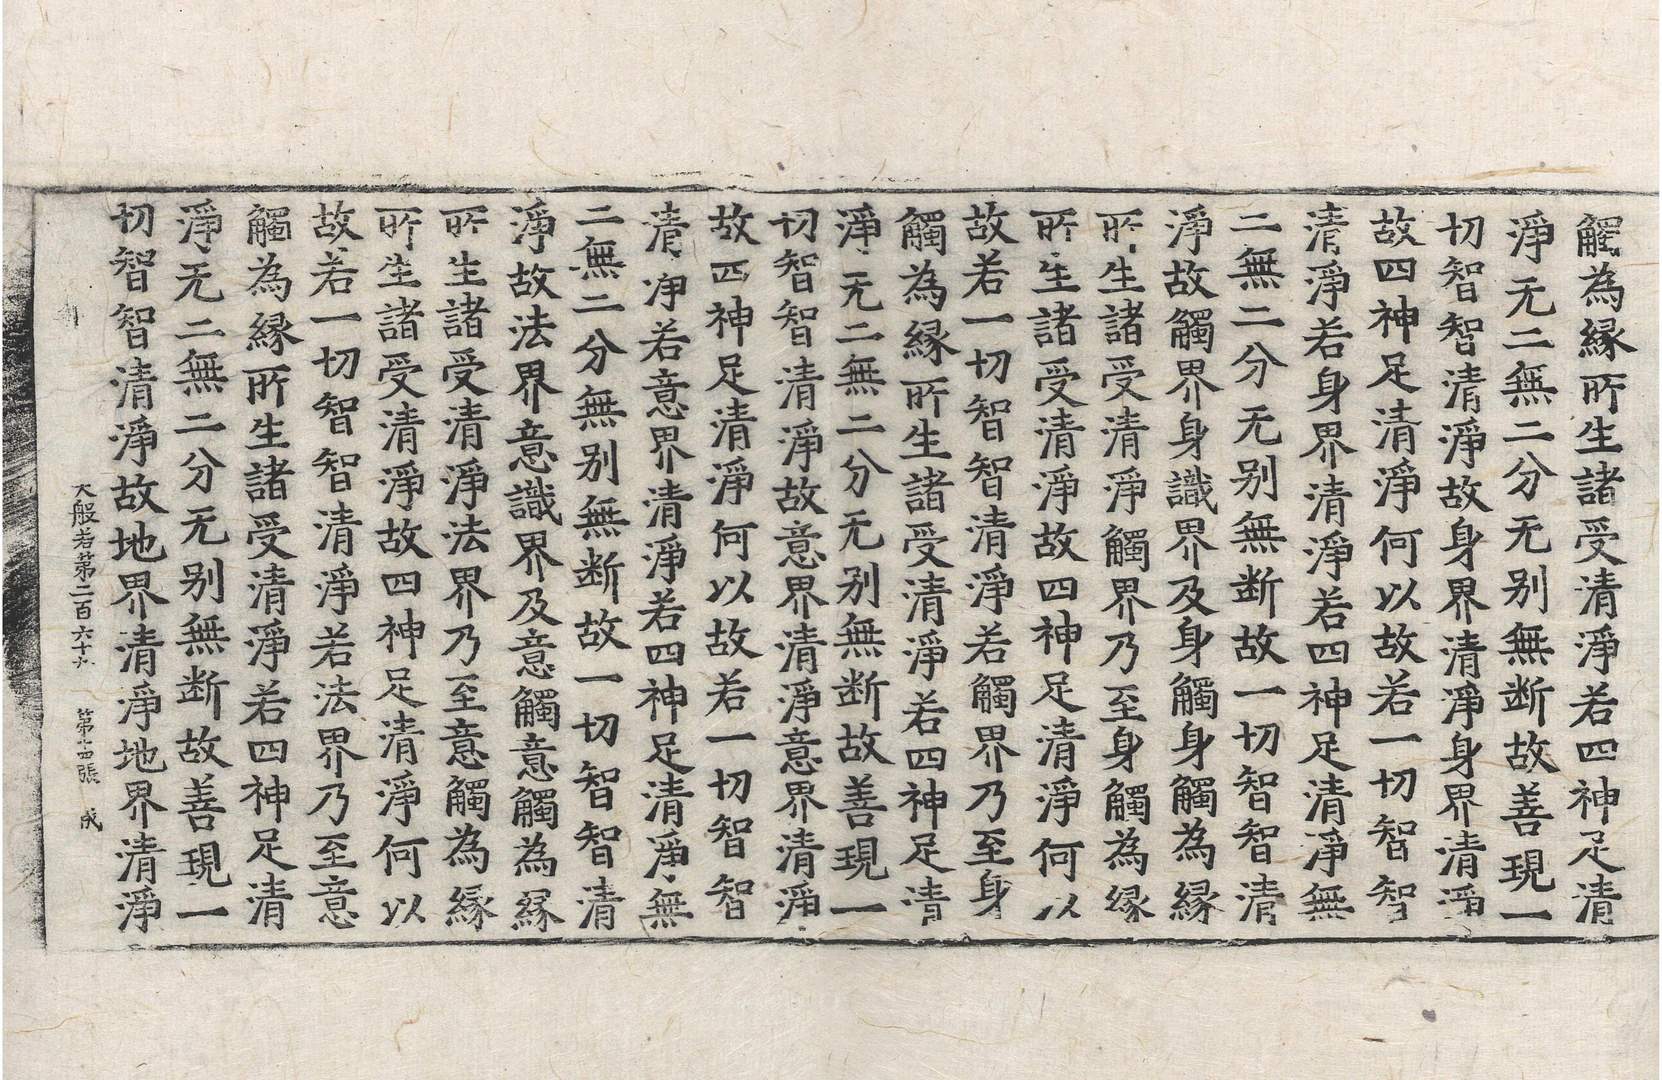 觸為縁所生諸受清淨若四神足清
淨无二無二分无别無断故善現一
切智智清淨故身界清淨身界清淨
故四神足清淨何以故若一切智智
清淨若身界清淨若四神足清淨無
二無二分无别無断故一切智智清
淨故觸界身識界及身觸身觸為縁
所生諸受清淨觸界乃至身觸為縁
所生諸受清淨故四神足清淨何以
故若一切智智清淨若觸界乃至身
觸為縁所生諸受清淨若四神足清
淨无二無二分无别無断故善現一
切智智清淨故意界清淨意界清淨
故四神足清淨何以故若一切智智
清净若意界清淨若四神足清淨無
二無二分無别無断故一切智智清
淨故法界意識界及意觸意觸為縁
所生諸受清淨法界乃至意觸為縁
所生諸受清淨故四神足清淨何以
故若一切智智清淨若法界乃至意
觸為縁所生諸受清淨若四神足清
淨无二無二分无别無断故善現一
切智智清淨故地界清淨地界清淨
大般若第二百六十六 第十四張 成